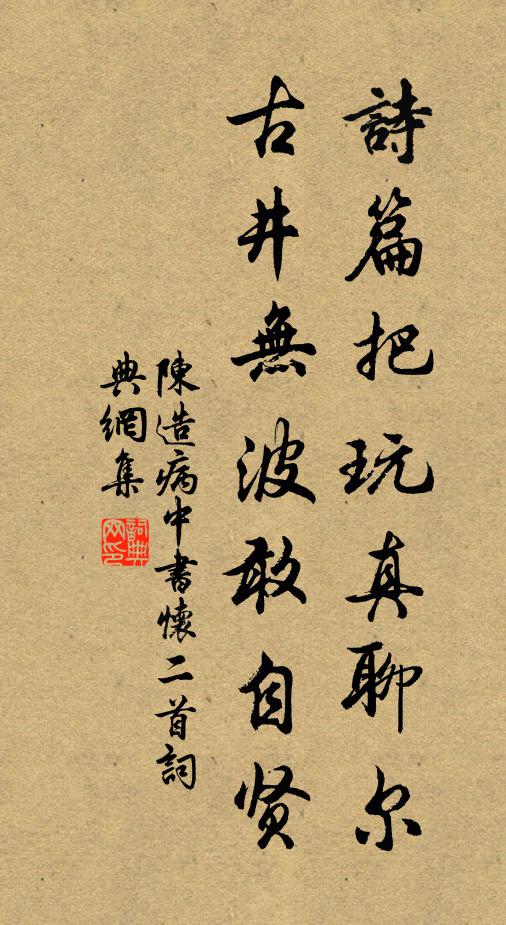 詩篇把玩真聊尔
古井無波敢自贤
陳造病中書懷二首詞
典網集
詞典網印